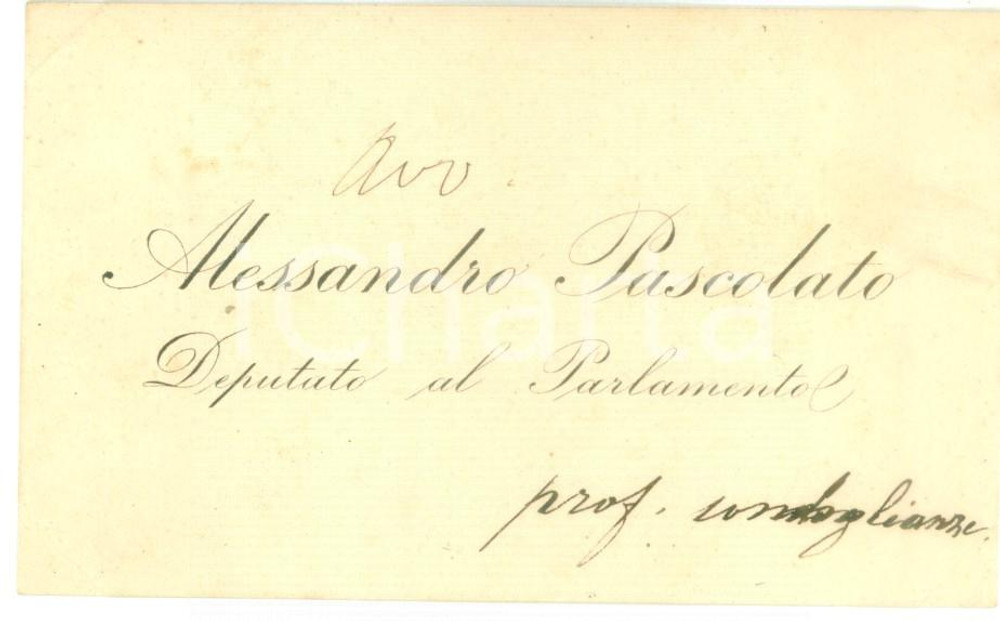 Avv.
Alessandro Pascolato
Deputato al Parlamento
prof. condoglianze.
iCharta